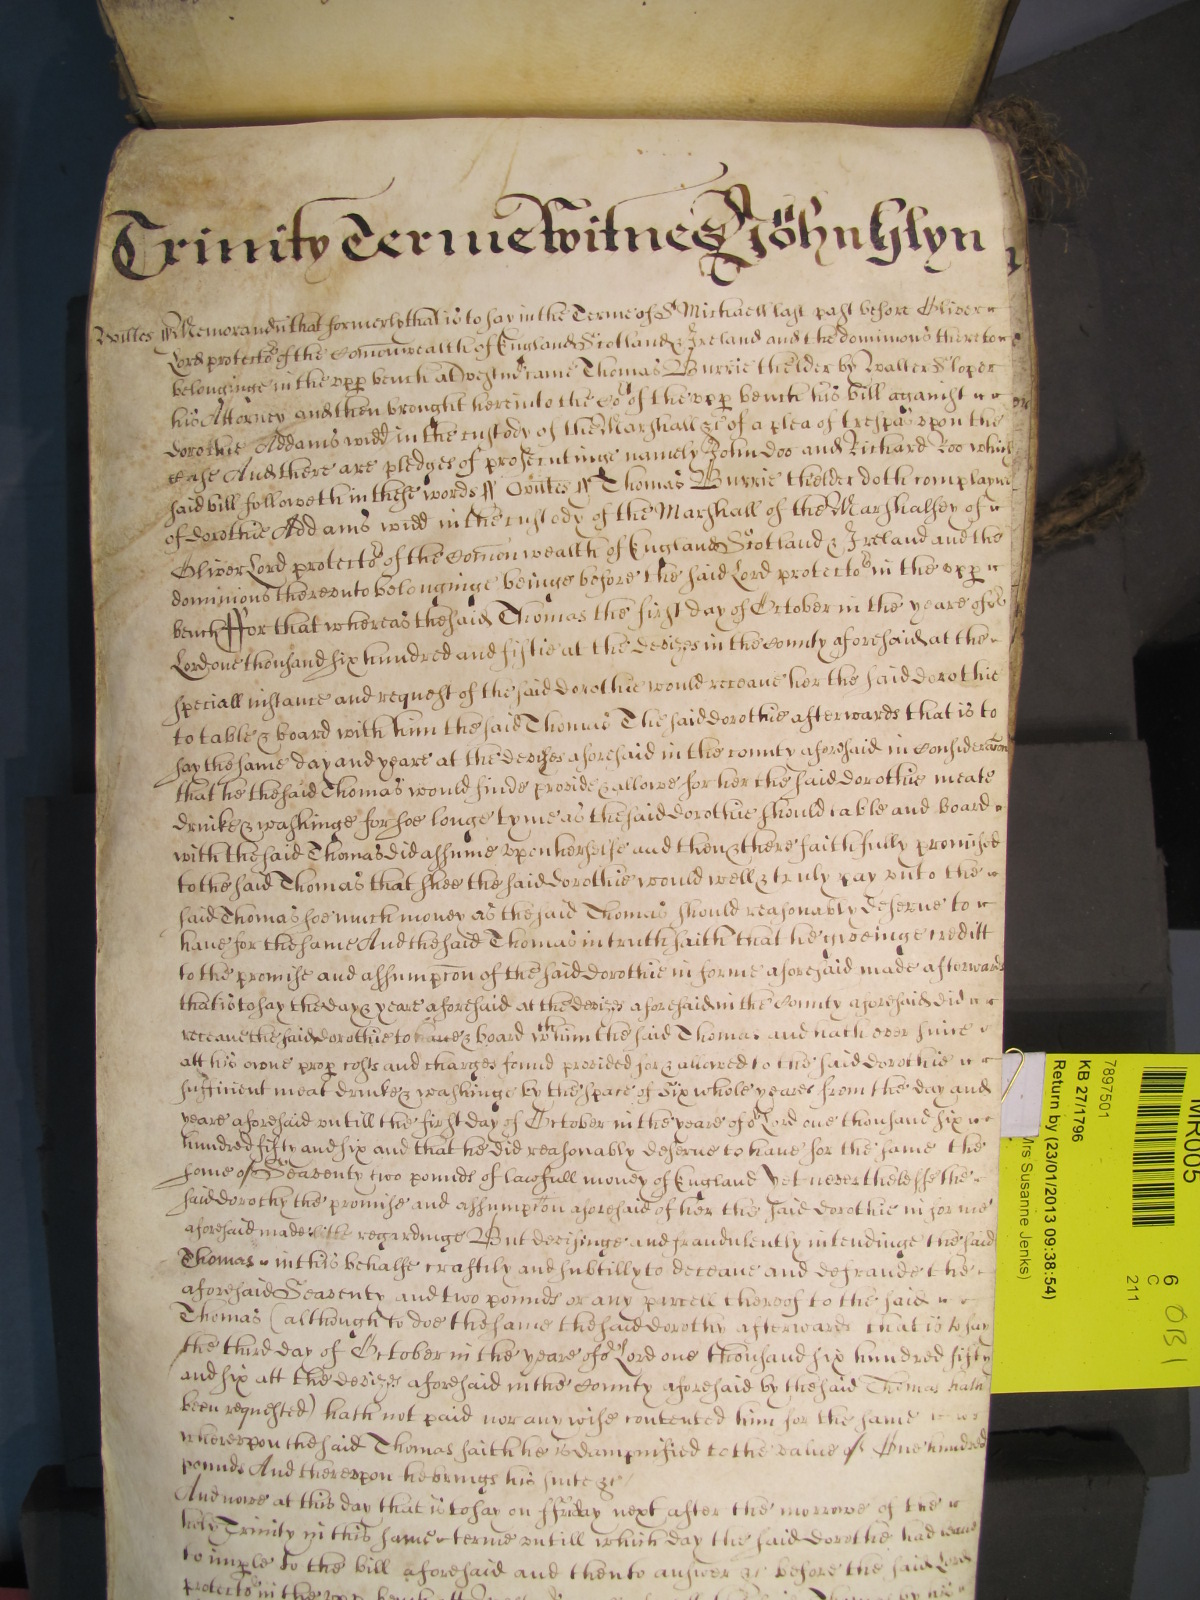 Trinity Terme Witnes John Glyn
Wiltes ss Memorandu that formerly that is to say in the Terme of St Michaell last past before Oliver
Lord protector of the Comonwealth of England Scotland & Ireland and the dominions thereto
belonginge in the upp bench at Westmr came Thomas Burrie thelder by Walter Sloper
his Attorney and then brought here into the Cort of the upp bench his bill against
Dorothie Addams widd in the custody of the Marshall &c of a plea of trespas upon the
case And there are pledges of prosecutinge namely John Doo and Richard Roo which
said bill followeth in these words ss Wiltes ss Thomas Burrie thelder doth complayne
of Dorothie Addams widd in the custody of the Marshall of the Marshalsey of
Oliver Lord protector of the Comon wealth of England Scotland & Ireland and the
dominions thereunto belonginge beinge before the said Lord protector in the upp
bench For that whereas the said Thomas the first day of October in the yeare of or
Lord one thousand six hundred and fiftie at the Devizes in the County aforesaid at the
speciall instance and request of the said Dorothie would receave her the said Dorothie
to table & board with him the said Thomas The said Dorothie afterwards that is to
say the same day and yeare at the Devizes aforesaid in the county aforesaid in Consideracon
that he the said Thomas would finde provide & allowe for her the said Dorothie meate
drinke & washinge for soe longe tyme as the said Dorothie should table and board
with the said Thomas did assume upon herselfe and then & there faithfully promised
to the said Thomas that shee the said Dorothie would well & truly pay unto the
said Thomas soe much money as the said Thomas should reasonably deserve to
have for the same And the said Thomas in truth saith that he giveinge creditt
to the promise and assumpcon of the said Dorothie in forme aforesaid made afterwards
that is to say the day & yeare aforesaid at the Devizes aforesaid in the County aforesaid did
receave the said Dorothie to table & board with him the said Thomas and hath ever since
att his owne prop costs and charges found provided for & allowed to the said Dorothie
sufficient meat drinke & washinge by the space of Six whole yeares from the day and
yeare aforesaid untill the first day of October in the yeare of or Lord one thousand six
hundred fifty and six and that he did reasonably deserve to have for the same the
some of Seaventy two pounds of lawfull money of England Yet neverthelesse the
said Dorothy the promise and assumption aforesaid of her the said Dorothie in forme
aforesaid made little regardinge But deviseinge and fraudulently intendinge the said
Thomas in this behalfe craftily and subtilly to deceave and defraude the
aforesaid Seaventy and two pounds or any parcell thereof to the said
Thomas (although to doe the same the said Dorothy afterwards that is to say
the third day of October in the yeare of or Lord one thousand six hundred fifty
and six att the Devizes aforesaid in the County aforesaid by the said Thomas hath
been requested) hath not paid nor any wise contented him for the same
whereupon the said Thomas saith he is dampnified to the value of One hundred
pounds And thereupon he brings his suite &c
And nowe at this day that is to say on Friday next after the morrowe of the
holy Trinity in this same terme untill which day the said Dorothie had leave
to imple to the bill aforesaid and then to answer &c before the said Lord
protector in the upp bench
MR005
7897501
KB 27/1796
Return by (23/01/2013 09:38:54)
Mrs Susanne Jenks)
6
C
211